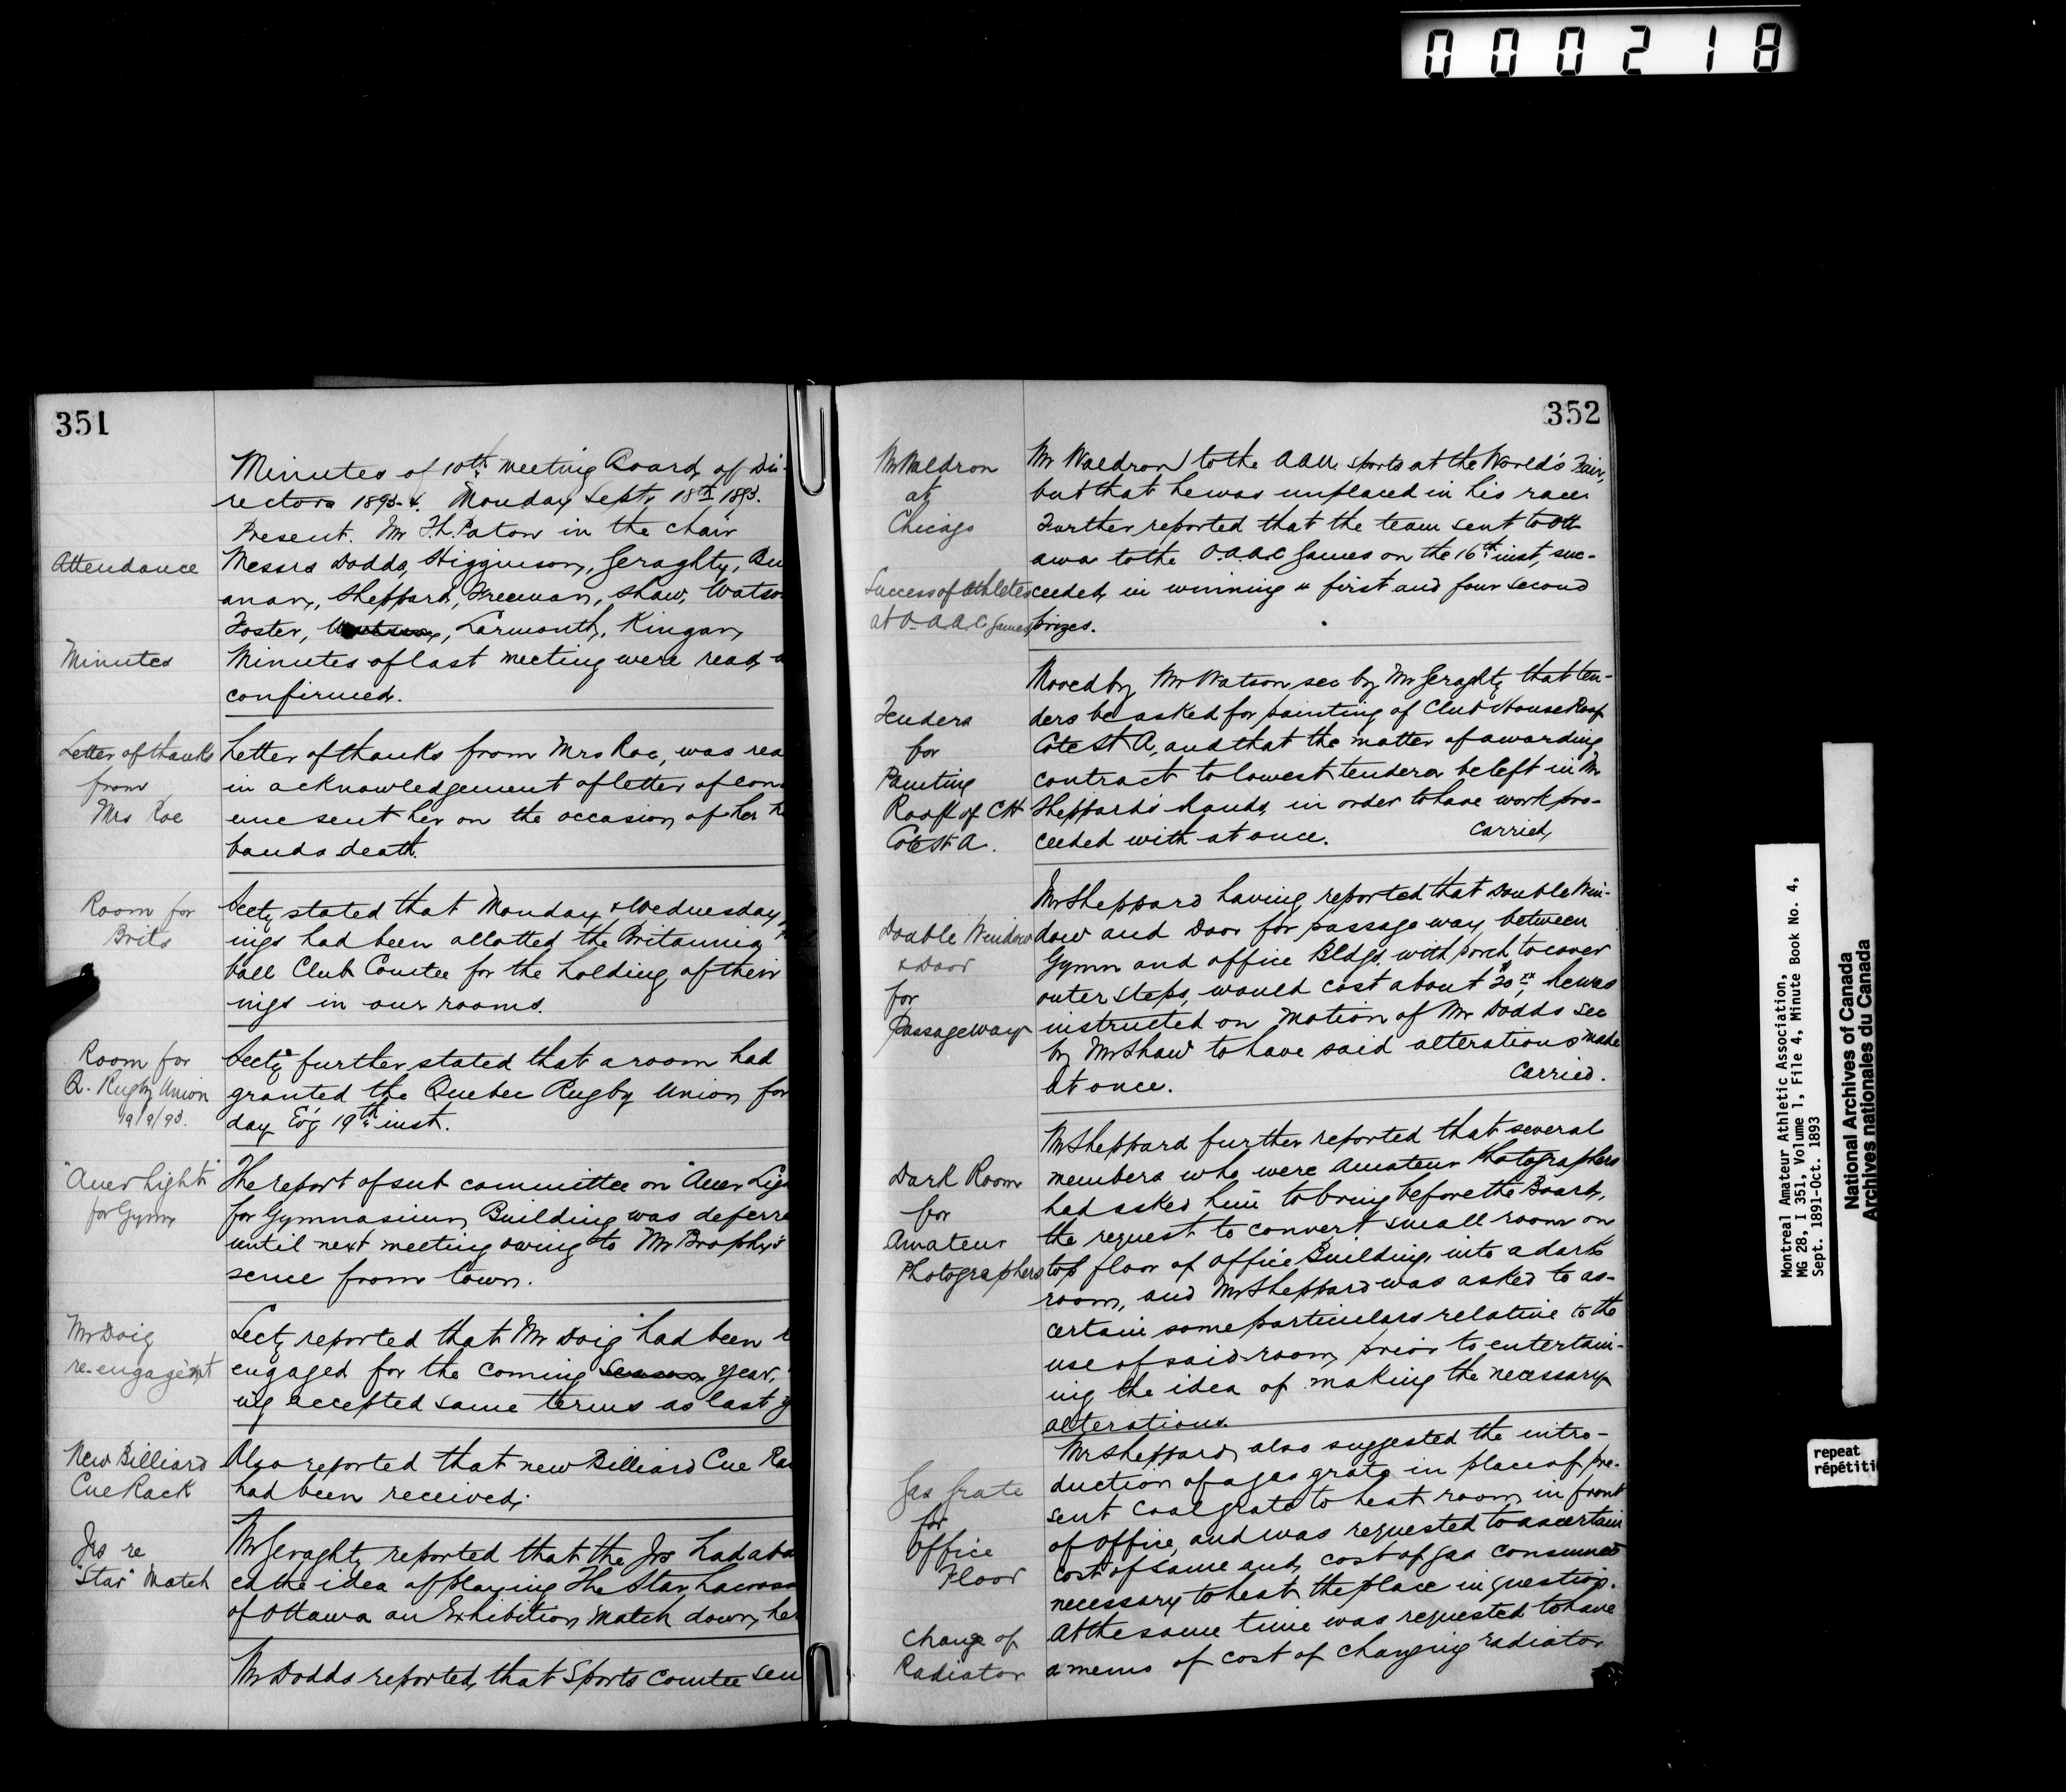 000218
351
Minutes of 10th meeting Board of Di-
rectors 1893-4. Monday Sept. 18th 1893.
Present. Mr T.L. Paton in the chair
Attendance
Messrs Dodds, Higginson, Geraghty, Bu
anan, Sheppard, Freeman, Shaw, Watso
Foster, Watson, Larmonth, Kingan,
Minutes
Minutes of last meeting were read, a
confirmed.
Letter of thanks
from
Mrs Roe
Letter of thanks from Mrs Roe, was rea
in acknowledgement of letter of con
ence sent her on the occasion of her h
bands death.
Room for
Brits
Secty stated that Monday & Wednesday
ings had been allotted the Britannia
ball Club Comtee for the holding of their
ings in our rooms.
Room for
Q. Rugby Union
19/9/93.
Secty further stated that a room had
granted the Quebec Rugby Union for
day Ev'g 19th inst.
"Auer Light"
for Gym
The report of sub committee on "Auer Lig
for Gymnasium Building was deferre
until next meeting owing to Mr Brophy's
sence from town.
Mr Doig
re-engagem't
Secty reported that Mr Doig had been
engaged for the coming Season year,
ing accepted same terms as last y
New Billiard
Cue Rack
Also reported that new Billiard Cue Ra
had been received;
Jrs re
"Star" Match
Mr Geraghty reported that the Jrs had aba
ed the idea of playing The Star Lacross
of Ottawa an Exhibition Match down he
Mr Dodds reported, that Sports Comtee sen
352
Mr Waldron
at
Chicago
Mr Waldron to the A.A.U. sports at the World's Fair,
but that he was unplaced in his race.
Further reported that the team sent to Ott
awa to the O.A.A.C Games on the 16th inst, suc-
Success of Athletes
at O.A.A.C Games
ceeded in winning 4 first and four second
prizes.
Tenders
for
Painting
Roof of C H
Cote St A.
Moved by Mr Watson sec by Mr Geraghty that ten-
ders be asked for painting of Club House Roof
Cote St A, and that the matter of awarding
contract to lowest tenderer be left in Mr
Sheppard's hands, in order to have work pro-
ceeded with at once. Carried,
Double Window
& Door
for
Passageway
Mr Sheppard having reported that Double Win-
dow and Door for passage way, between
Gymn and office Bldgs, with porch to cover
outer steps, would cost about $20.xx, he was
instructed on motion of Mr Dodds sec
by Mr Shaw to have said alterations made
at once. Carried.
Dark Room
for
Amateur
Photographers
Mr Sheppard further reported that several
members who were Amateur Photographers
had asked him to bring before the Board,
the request to convert small room on
top floor of office Building, into a dark
room, and Mr Sheppard was asked to as-
certain some particulars relative to the
use of said room, prior to entertain-
ing the idea of making the necessary
alterations.
Gas Grate
for
Office
Floor
Mr Sheppard, also suggested the intro-
duction of a gas grate in place of pre-
sent Coal grate to heat room in front
of office, and was requested to ascertain
cost of same and, cost of gas consumed
necessary to heat the place in question.
Change of
Radiator
At the same time was requested to have
a memo of cost of changing radiator
Montreal Amateur Athletic Association,
MG 28, I 351, Volume 1, File 4, Minute Book No. 4,
Sept. 1891-Oct. 1893
National Archives of Canada
Archives nationales du Canada
repeat
répétiti